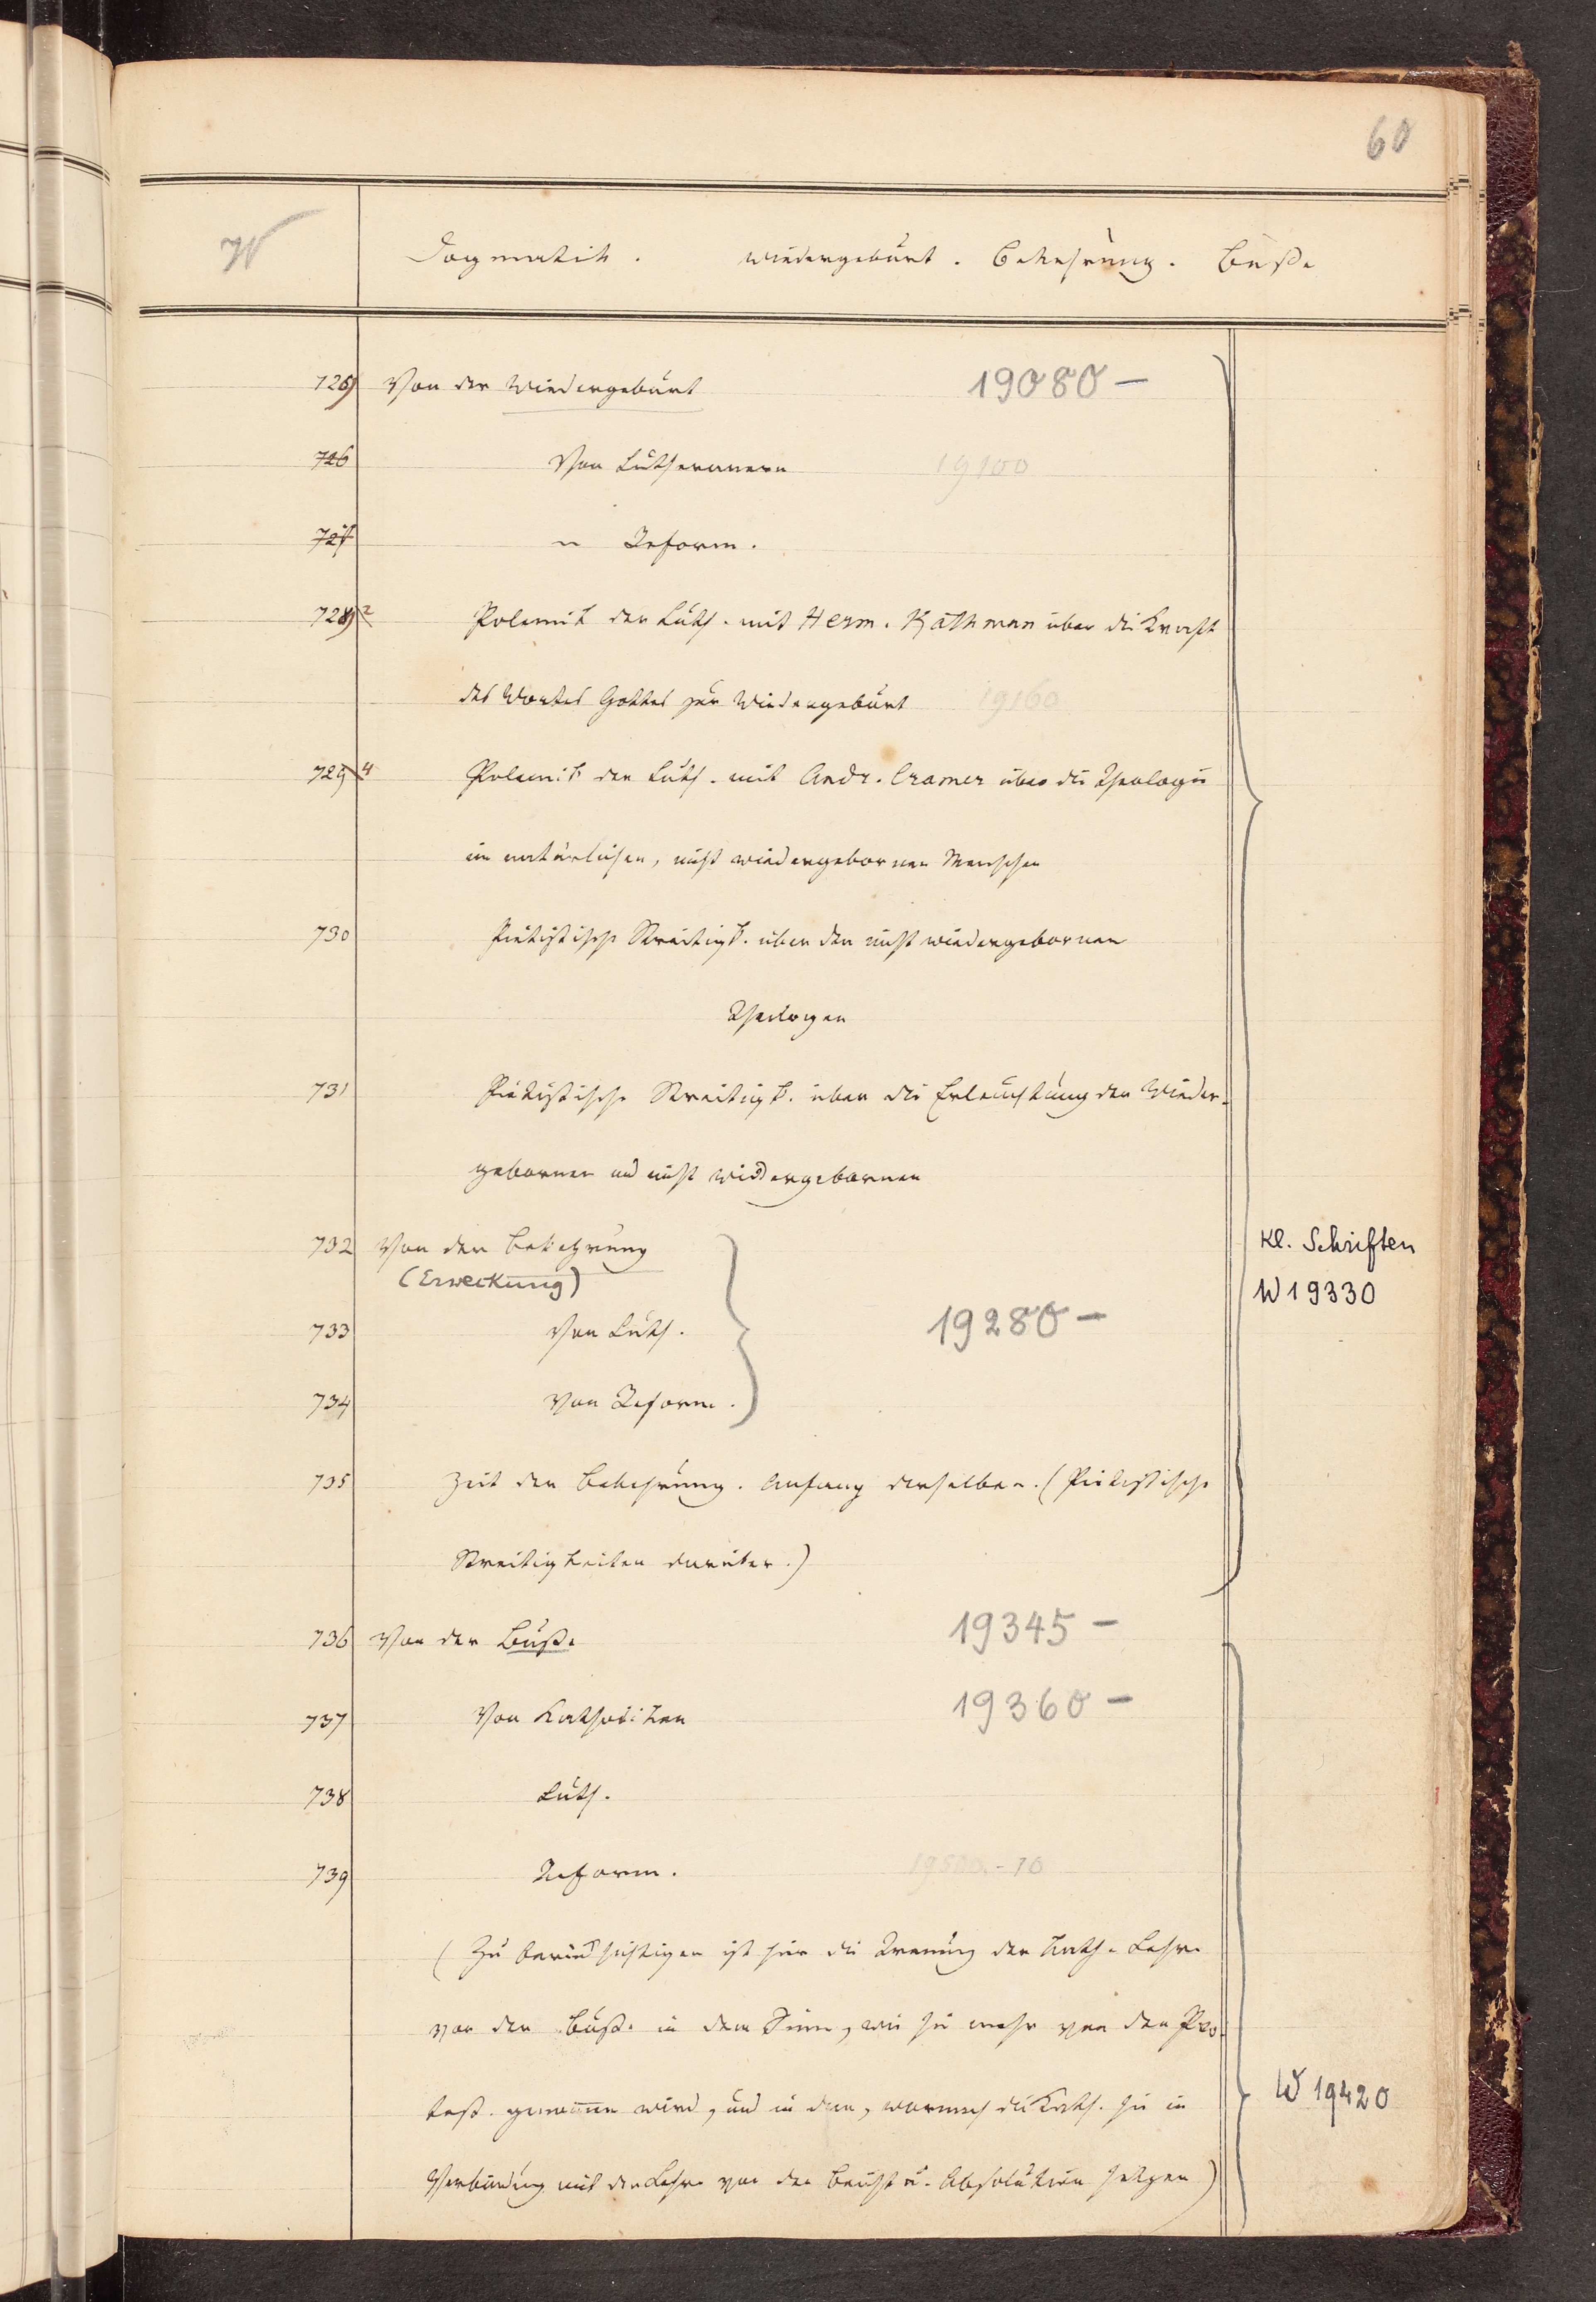 60
W Dogmatik. Wiedergeburt. Bekehrung. Buße
725 Von der Wiedergeburt 19080 —
726 Von Lutheranern 19100
727 " Reform.
728 2 Polemik der Luth. mit Herm. Rathman über die Kraft
des Wortes Gottes zur Wiedergeburt 19160
729 4 Polemik der Luth. mit Andr. Cramer über die Theologie
im natürlichen, nicht wiedergebornen Menschen
730 Pietistische Streitigk. über den nicht wiedergebornen
Theologen
731 Pietistische Streitigk. über die Erleuchtung der Wieder-
gebornen und nicht wiedergebornen
732 Von der Bekehrung
(Erweckung)
Kl. Schriften
W 19330
733 Von Luth. 19280 —
734 Von Reform.
735 Zeit der Bekehrung. Anfang derselben. (Pietistische
Streitigkeiten darüber.)
736 Von der Buße 19345 —
737 Von Katholiken 19360 —
738 Luth.
739 Reform. 19500.-10
(Zu berücksichtigen ist hier die Trennung der Kath. Lehre
von der Buße in dem Sinn, wie sie mehr von den Pro-
test. genommen wird, und in dem, wornach die Kath. sie in
Verbindung mit der Lehre von der Beicht u. Absolution setzen)
W 19420